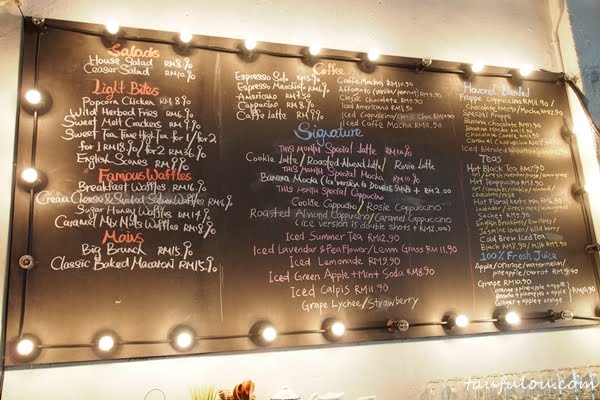 Salads
House Salad RM8.9⁄₀
Ceasar Salad RM10.9⁄₀
Light Bites
Popcorn Chicken RM8.9⁄₀
Wild Herbed Fries RM6.9⁄₀
Sweet Malt Crackers RM7.9⁄₀
Sweet Tea Time High Tea for 1/for 2
for 1 RM18.9⁄₀ for 2 RM36.9⁄₀
English Scones RM8.9⁄₀
Famous Waffles
Breakfast Waffles RM16.9⁄₀
Cream Cheese & Smoked Salmon Waffles
Sugar Honey Waffles RM14.9⁄₀
Caramel Mix Nuts Waffles RM14.9⁄₀
Mains
Big Brunch RM15.9⁄₀
Classic Baked Macaroni RM15.9⁄₀
Coffee
Espresso Solo
Espresso Macchiato
Americano RM7.50
Cappuccino RM8.9⁄₀
Caffe Latte RM8.9⁄₀
Caffe Mocha RM10.90
Affogato (vanilla/peanut)
Classic Chocolate RM9.90
Iced Americano RM8.50
Iced Cappuccino/
Iced Caffe Mocha RM11.90
Signature
THIS MONTH Special Latte
Cookie Latte / Roasted Almond Latte / Rosie Latte
THIS MONTH Special Mocha
Banana Mocha (Ice Version is Double Shots + RM2.00
THIS MONTH Special Cappuccino
Cookie Cappuccino / Rosie Cappuccino
Roasted Almond Cappuccino / Caramel Cappuccino
(ice version is double shots + RM2.00)
Iced Summer Tea RM12.90
Iced Lavender & Pea Flower / Lemon Grass RM11.90
Iced Lemonade RM9.90
Iced Green Apple + Mint Soda RM8.90
Iced Calpis RM9.90
Grape Lychee / Strawberry
Flavored Blended
Frappe Cappuccino RM11.90
Chocolate RM11.90 / Mocha RM12.90
Special Frappe
Chocolate RM11.90
Banana Mocha RM13.90
Chocolate RM13.90
Caramel Cappuccino
Iced Blended
Teas
Hot Black Tea RM7.90
Hot Teapuccino RM9.90
Hot Floral herbs RM9.90
Sachet RM9.90
Jasmine Green / Wild berry
Cold Brew Iced Tea
Black RM7.90 /
100% Fresh Juice
Apple/orange/watermelon/
pineapple/carrot RM9.90
Grape RM10.90
orange + pineapple + apple
Banana + pineapple + apple
Ginger + apple + orange
RM10.90
taufulou.com